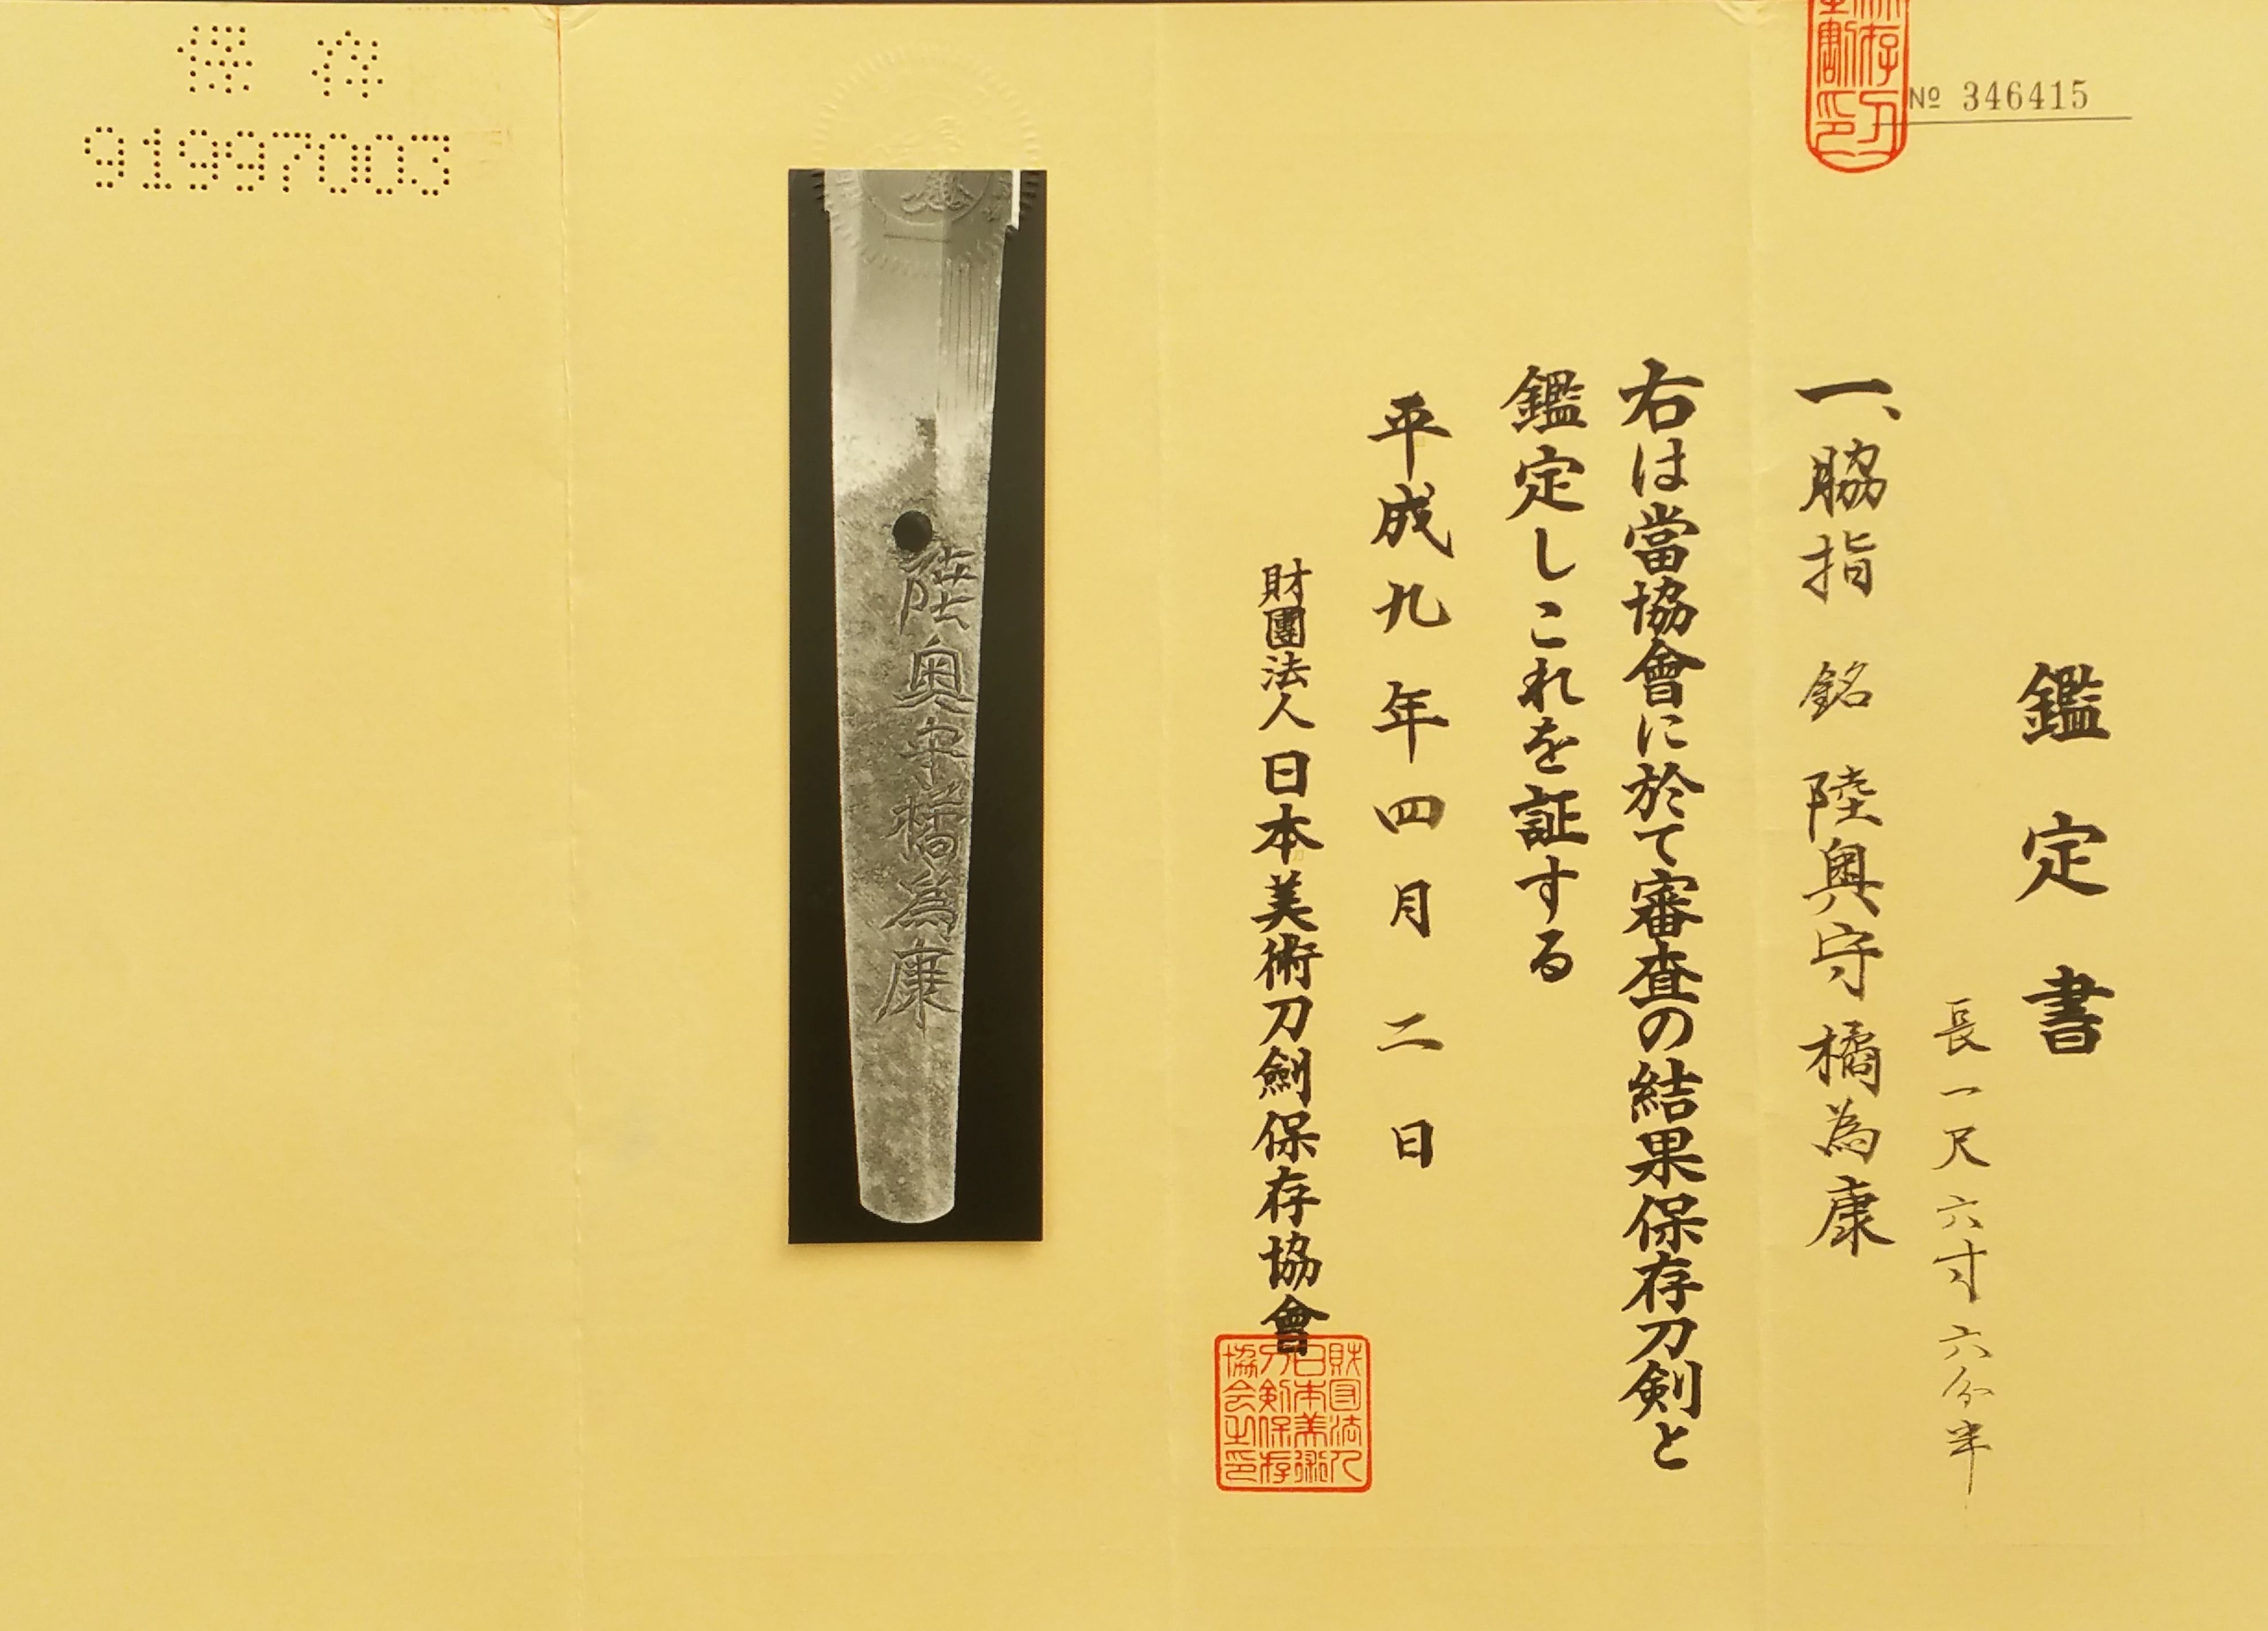 № 346415
鑑定書
長一尺六寸六分半
一、脇指 銘 陸奥守橘為康
右は當協會に於て審査の結果保存刀剣と
鑑定しこれを証する
平成九年四月二日
財團法人日本美術刀劍保存協會
財団法人
日本美術
刀剣保存
協会之印
陸奥守橘為康
保存
91997003